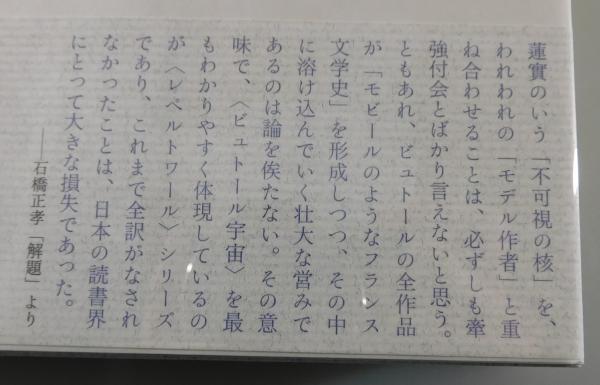 蓮實のいう「不可視の核」を、
われわれの「モデル作者」と重
ね合わせることは、必ずしも牽
強付会とばかり言えないと思う。
ともあれ、ビュトールの全作品
が「モビールのようなフランス
文学史」を形成しつつ、その中
に溶け込んでいく壮大な営みで
あるのは論を俟たない。その意
味で、〈ビュトール宇宙〉を最
もわかりやすく体現しているの
が〈レペルトワール〉シリーズ
であり、これまで全訳がなされ
なかったことは、日本の読書界
にとって大きな損失であった。
――石橋正孝「解題」より